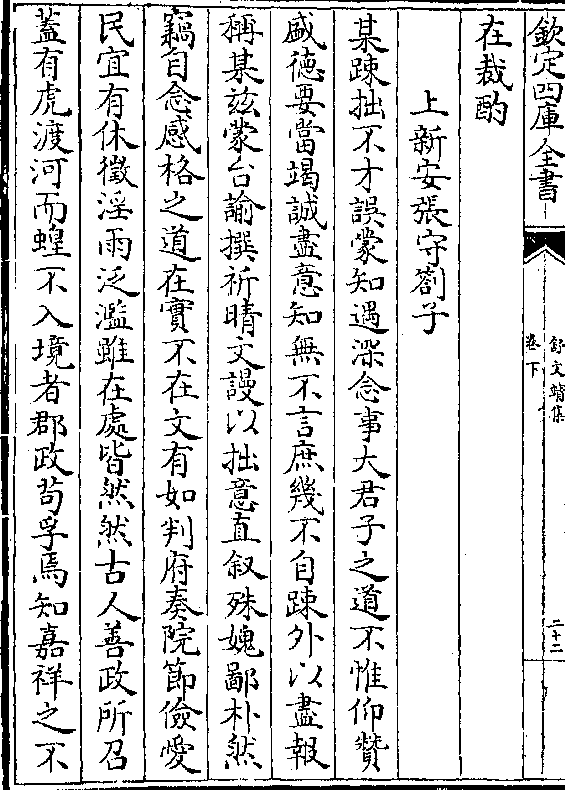 欽定四庫全書
舒文靖集
卷下
二十二
在裁酌
上新安張守劄子
某踈拙不才誤蒙知遇深念事大君子之道不惟仰贊
盛徳要當竭誠盡意知無不言庶幾不自踈外以盡報
稱某兹蒙台諭撰祈晴文謾以拙意直叙殊媿鄙朴然
竊自念感格之道在實不在文有如判府奏院節儉愛
民宜有休徵淫雨泛濫雖在處皆然然古人善政所召
蓋有虎渡河而蝗不入境者郡政苟孚焉知嘉祥之不